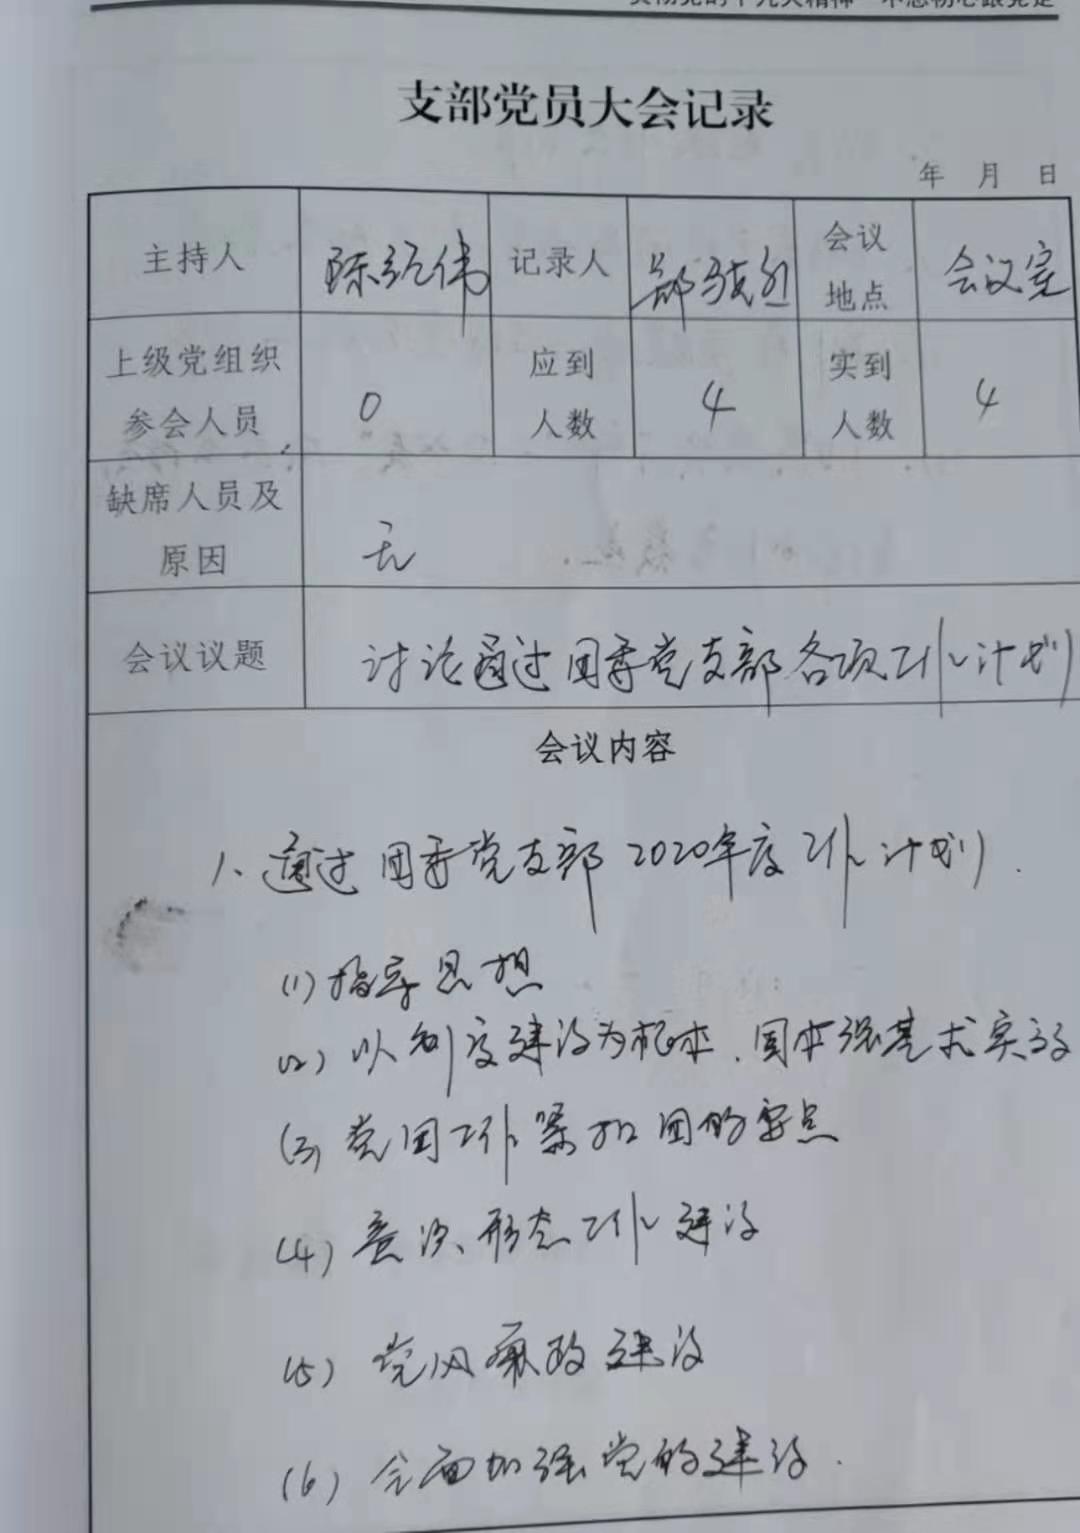 贯彻党的十九大精神 不忘初心跟党走
支部党员大会记录
年 月 日
主持人 陈经伟 记录人 郑 会议地点 会议室
上级党组织参会人员 0 应到人数 4 实到人数 4
缺席人员及原因 无
会议议题 讨论通过团委党支部各项工作计划
会议内容
1、通过团委党支部2020年度工作计划.
(1)指导思想
(2)以制度建设为根本、固本强基求实效
(3)党团工作紧扣团的要点
(4)意识形态工作建设
(5)党风廉政建设
(6)全面加强党的建设.